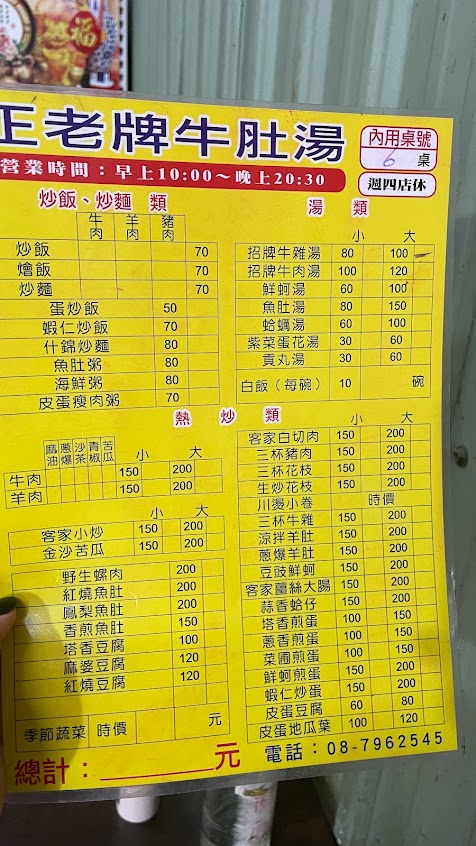 福
正老牌牛肚湯
內用桌號
6 桌
營業時間：早上10:00～晚上20:30
週四店休
炒飯、炒麵 類
牛肉 羊肉 豬肉
炒飯 70
燴飯 70
炒麵 70
蛋炒飯 50
蝦仁炒飯 70
什錦炒麵 80
魚肚粥 80
海鮮粥 80
皮蛋瘦肉粥 70
湯 類
小 大
招牌牛雜湯 80 100
招牌牛肉湯 100 120
鮮蚵湯 60 100
魚肚湯 80 150
蛤蠣湯 60 100
紫菜蛋花湯 30 60
貢丸湯 30 60
白飯（每碗） 10 碗
熱 炒 類
麻油 蔥爆 沙茶 青椒 苦瓜 小 大
牛肉 150 200
羊肉 150 200
小 大
客家小炒 150 200
金沙苦瓜 150 200
野生螺肉 200
紅燒魚肚 200
鳳梨魚肚 200
香煎魚肚 150
塔香豆腐 100
麻婆豆腐 120
紅燒豆腐 120
季節蔬菜 時價 元
小 大
客家白切肉 150 200
三杯豬肉 150 200
三杯花枝 150 200
生炒花枝 150 200
川燙小卷 時價
三杯牛雜 150 200
涼拌羊肚 150 200
蔥爆羊肚 150 200
豆豉鮮蚵 150 200
客家薑絲大腸 150 200
蒜香蛤仔 150 200
塔香煎蛋 100 150
蔥香煎蛋 100 150
菜圃煎蛋 100 150
鮮蚵煎蛋 150 200
蝦仁炒蛋 150 200
皮蛋豆腐 60 80
皮蛋地瓜葉 100 120
總計：元
電話：08-7962545